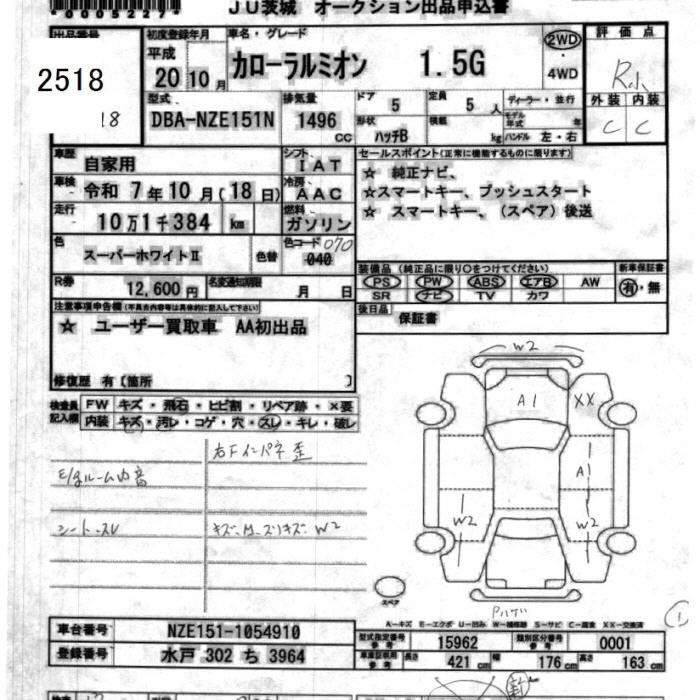 00052277
ＪＵ茨城 オークション出品申込書
出品番号
2518
18
初度登録年月
平成 20 10 月
車名・グレード
カローラルミオン 1.5G
2WD
・
4WD
評価点
R小
外装 内装
C C
型式
DBA-NZE151N
排気量
1496 CC
ドア 5
定員 5 人
ディーラー・並行
モデル年式 年
形状 ハッチB
積載 kg
ハンドル 左・右
車歴 自家用
シフト IAT
車検 令和 7年 10月(18日)
冷房 AAC
走行 10万1千384 km
燃料 ガソリン
色 スーパーホワイトⅡ 色替
色コード 070
040
R券 12,600円
名変通知期限 月 日
セールスポイント(正常に機能するものに限ります)
☆ 純正ナビ、
☆スマートキー、プッシュスタート
☆ スマートキー、（スペア）後送
装備品（純正品に限り○をつけてください）
PS PW ABS エアB AW
SR ナビ TV カワ
新車保証書
有・無
後日品 保証書
注意事項申告欄(不具合内容等は具体的に記入して下さい)
☆ ユーザー買取車 AA初出品
修復歴 有〔箇所 〕
検査員記入欄
FW キズ・飛石・ヒビ割・リペア跡・×要
内装 キズ・汚レ・コゲ・穴・スレ・キレ・破レ
右Fインパネ歪
シート・スレ
W2
A1
XX
A1
W2
W2
スペア
Pハゲ
1
A―キズ E―エクボ U―凹み W―補修跡 S―サビ C―腐食 XX―交換済
車台番号 NZE151-1054910
登録番号 水戸 302 ち 3964
型式指定番号 参考 15962
類別区分番号 参考 0001
車庫証明用 参考 長さ 421 cm 幅 176 cm 高さ 163 cm